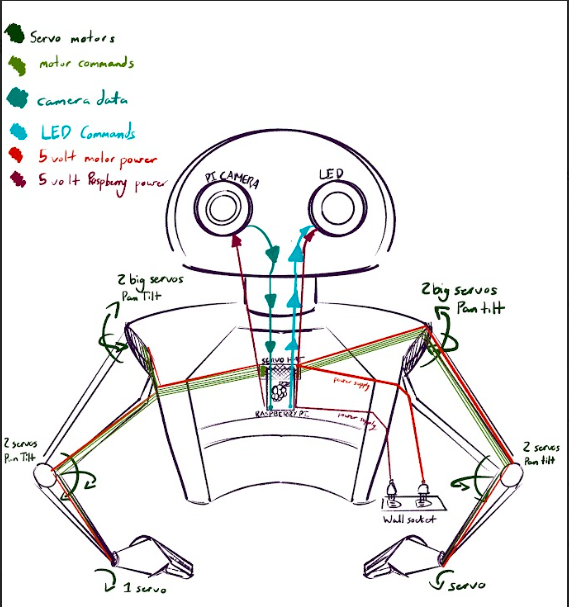 Servo motors
motor commands
camera data
LED Commands
5 volt motor power
5 volt Raspberry power
PI CAMERA
LED
2 big servos
Pan Tilt
2 big servos
Pan tilt
SERVO HAT
power supply
RASPBERRY PI
power supply
2 servos
Pan Tilt
2 servos
Pan tilt
Wall socket
1 servo
servo